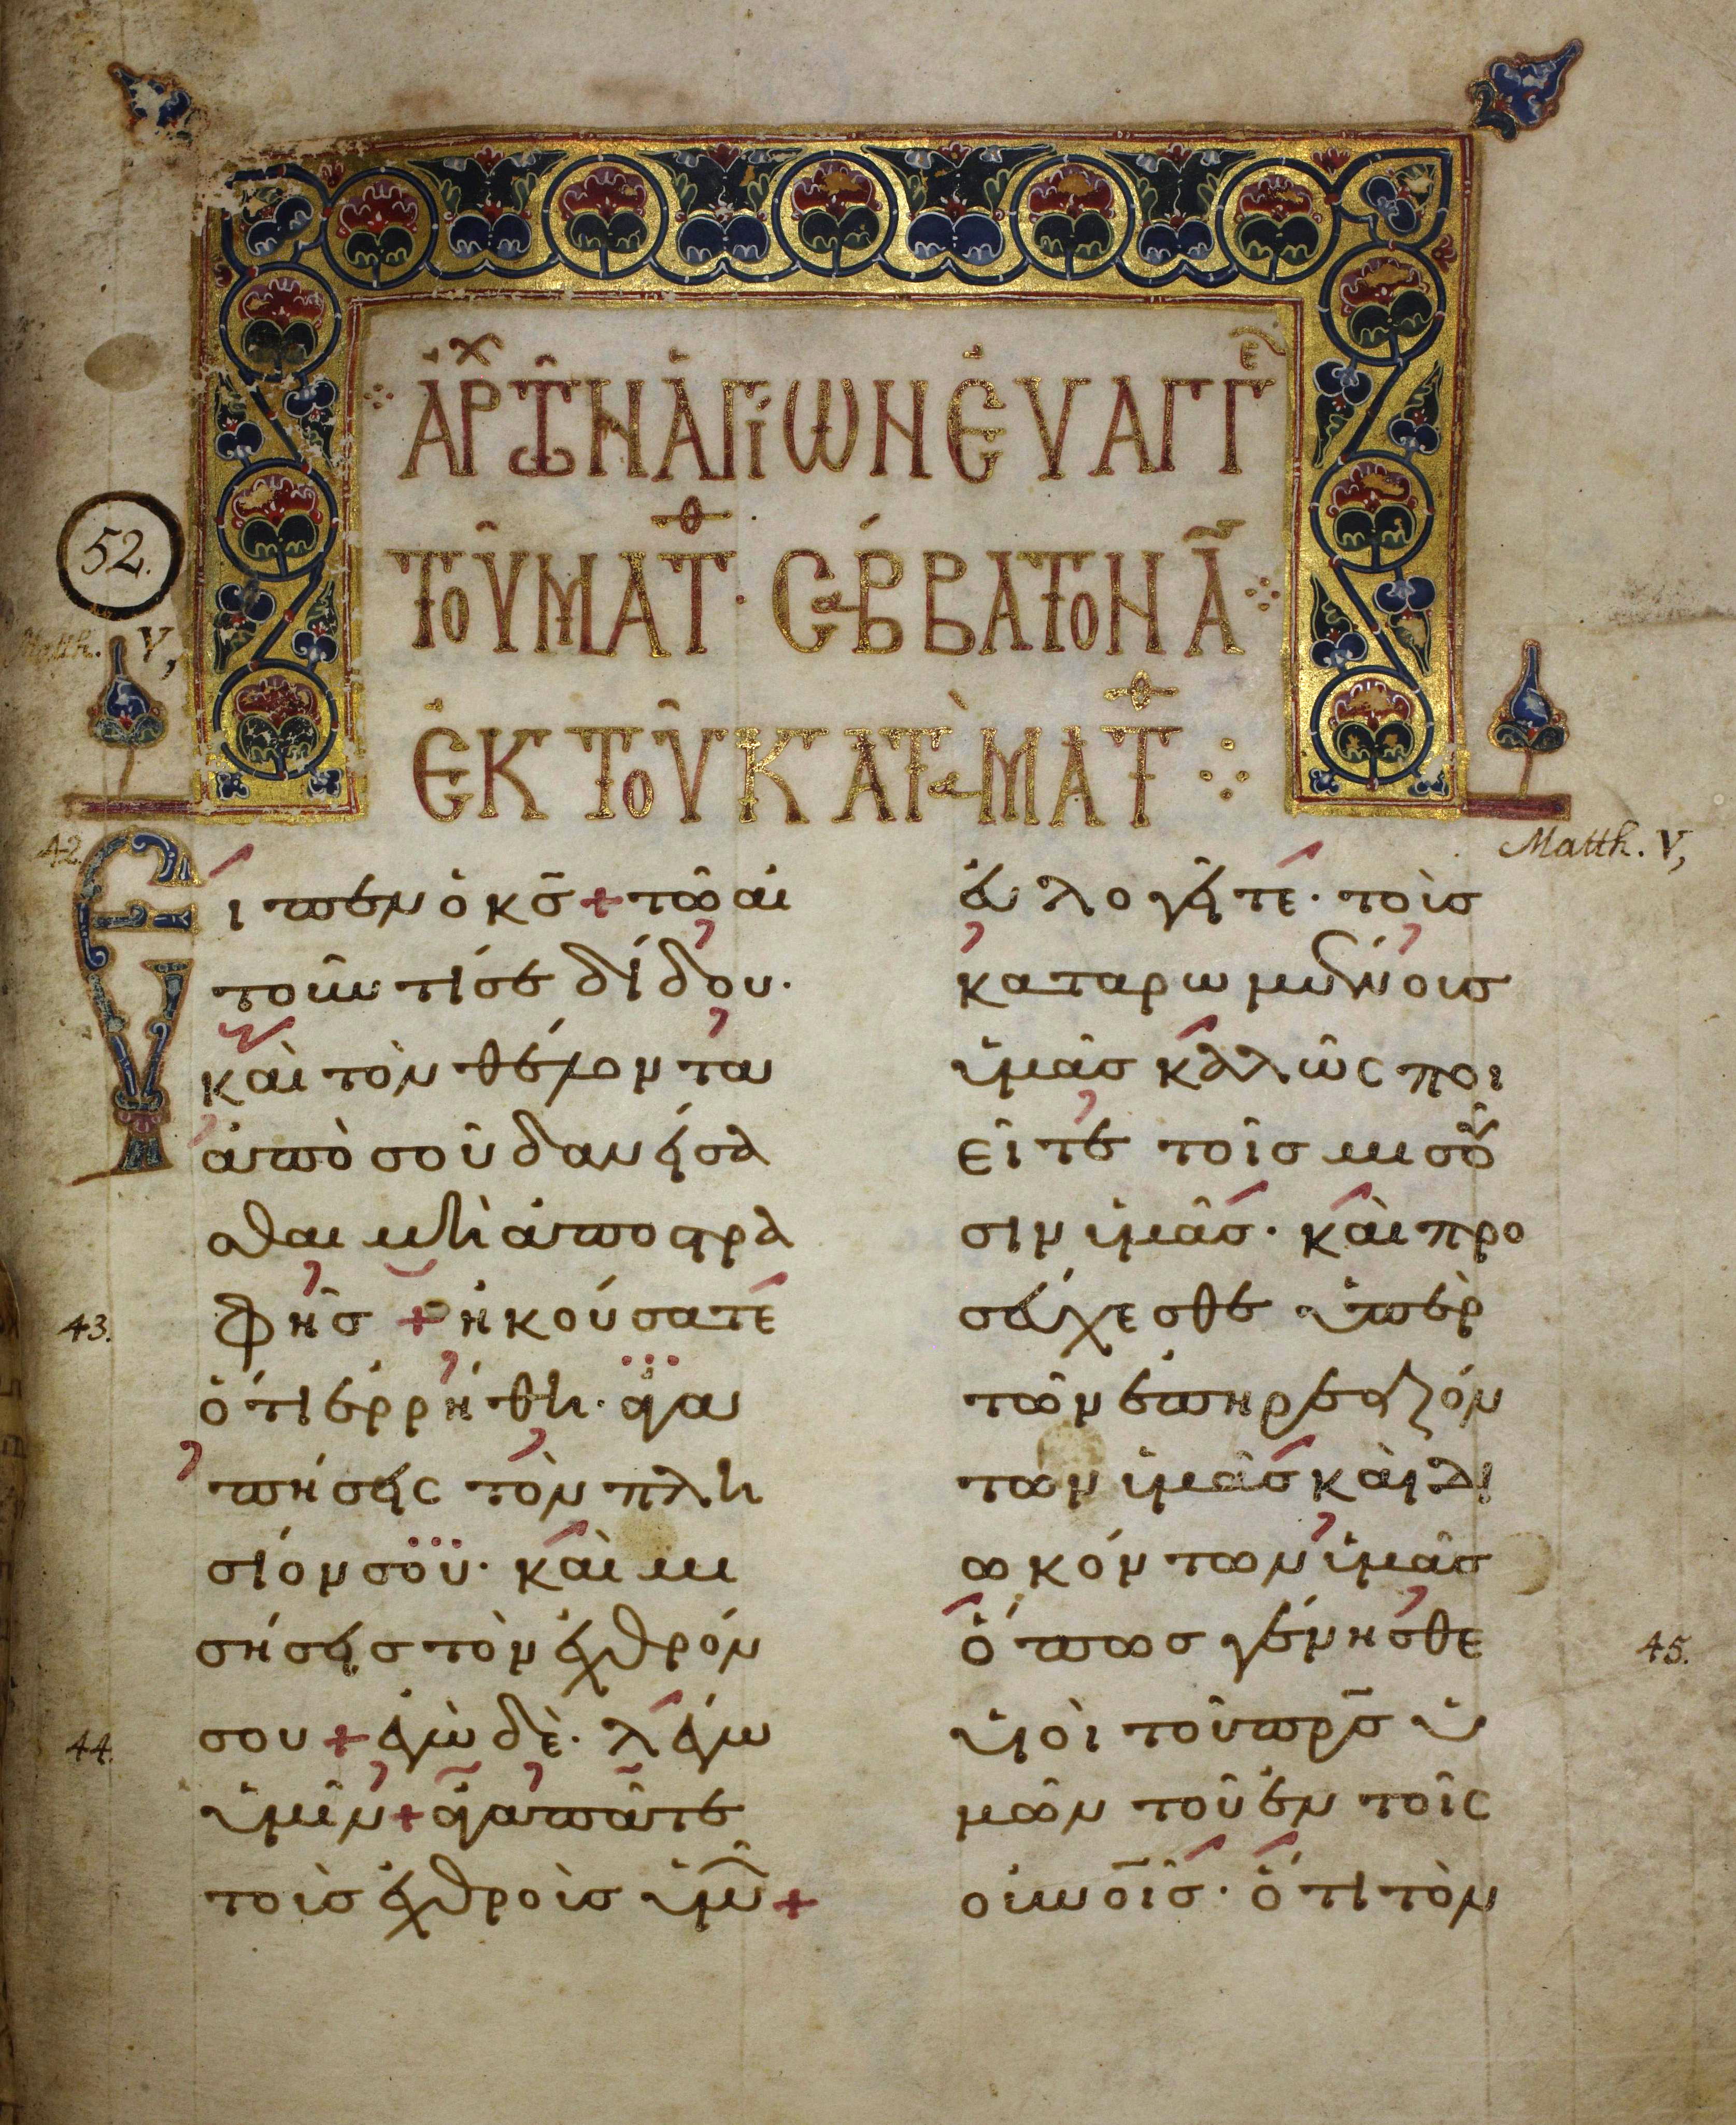 ἈΡΧ ΤΩΝ ἉΓΙΩΝ ΕΥΑΓΓΕ
ΤΟΥ ΜΑΤΘ · ΣΑΒΒΑΤΟΝ Α
ἘΚ ΤΟΥ ΚΑΤΑ ΜΑΤΘ
52.
Matth. V,
Matth. V,
42.
Εἶπεν ὁ κς + τῶ αἰ
τοῦντί σε δίδου·
καὶ τὸν θέλοντα
ἀπὸ σοῦ δανήσα
σθαι μὴ ἀποστρα
43.
φῆς + ἠκούσατε
ὅτι ἐρρήθη· ἀγα
πήσεις τὸν πλη
σίον σου· καὶ μι
σήσεις τὸν ἐχθρόν
44.
σου + ἐγὼ δὲ· λέγω
ὑμῖν + ἀγαπᾶτε
τοὺς ἐχθροὺς ὑμῶν +
εὐλογεῖτε· τοὺς
καταρωμένους
ὑμᾶς καλῶς ποι
εῖτε τοῖς μισοῦ
σιν ὑμᾶς· καὶ προ
σεύχεσθε ὑπὲρ
τῶν ἐπηρεαζόν
των ὑμᾶς καὶ δι
ωκόντων ὑμᾶς
45.
ὅπως γένησθε
υἱοὶ τοῦ πρς ὑ
μῶν τοῦ ἐν τοῖς
οὐνοῖς· ὅτι τὸν